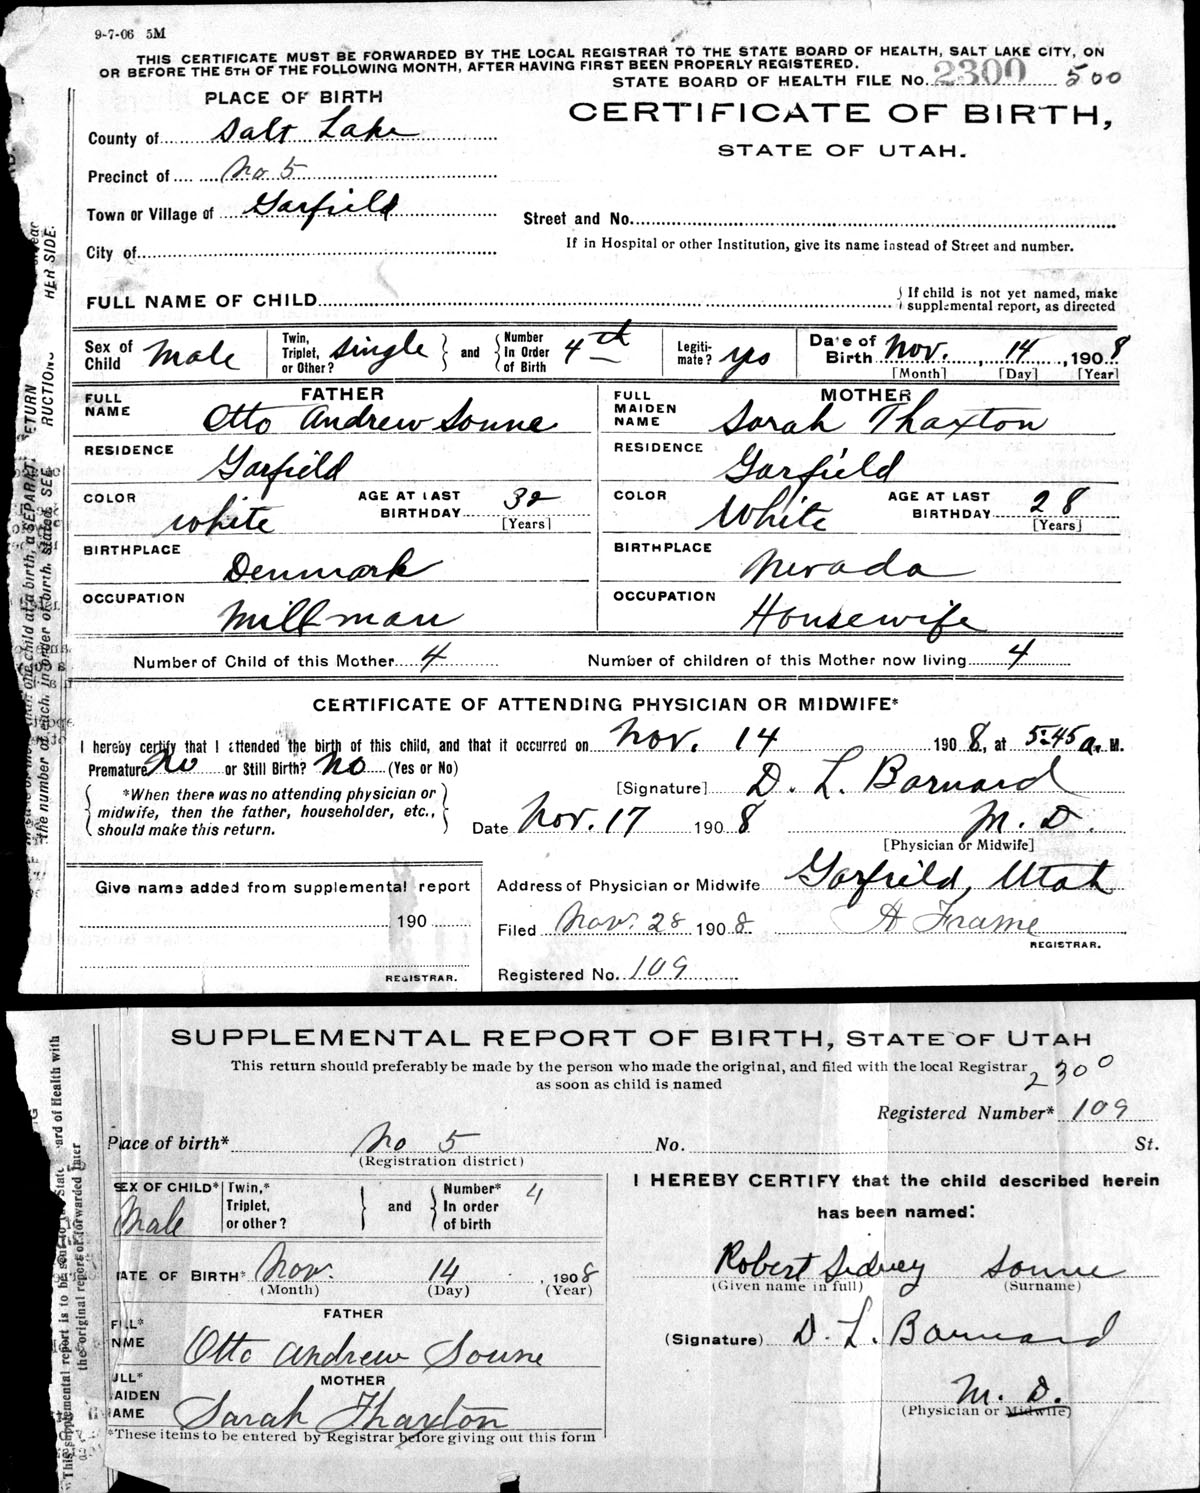 9-7-06 5M
THIS CERTIFICATE MUST BE FORWARDED BY THE LOCAL REGISTRAR TO THE STATE BOARD OF HEALTH, SALT LAKE CITY, ON
OR BEFORE THE 5TH OF THE FOLLOWING MONTH, AFTER HAVING FIRST BEEN PROPERLY REGISTERED.
STATE BOARD OF HEALTH FILE No. 2300 500
PLACE OF BIRTH
CERTIFICATE OF BIRTH,
STATE OF UTAH.
County of Salt Lake
Precinct of No 5
Town or Village of Garfield
Street and No.
If in Hospital or other Institution, give its name instead of Street and number.
City of
FULL NAME OF CHILD
If child is not yet named, make
supplemental report, as directed
Sex of Child Male
Twin, Triplet, or Other? Single and Number In Order of Birth 4th
Legitimate? yes
Date of Birth Nov. 14, 1908
[Month] [Day] [Year]
FATHER
FULL NAME Otto Andrew Sonne
RESIDENCE Garfield
COLOR White AGE AT LAST BIRTHDAY 32 [Years]
BIRTHPLACE Denmark
OCCUPATION Millman
MOTHER
FULL MAIDEN NAME Sarah Thaxton
RESIDENCE Garfield
COLOR White AGE AT LAST BIRTHDAY 28 [Years]
BIRTHPLACE Nevada
OCCUPATION Housewife
Number of Child of this Mother 4 Number of children of this Mother now living 4
CERTIFICATE OF ATTENDING PHYSICIAN OR MIDWIFE*
I hereby certify that I attended the birth of this child, and that it occurred on Nov. 14 1908, at 5:45 a. M.
Premature No or Still Birth? No (Yes or No)
[Signature] D. L. Barnard
*When there was no attending physician or
midwife, then the father, householder, etc.,
should make this return.
Date Nov. 17 1908 M. D.
[Physician or Midwife]
Address of Physician or Midwife Garfield, Utah
Give name added from supplemental report
190
REGISTRAR.
Filed Nov. 28 1908. A Frame
REGISTRAR.
Registered No. 109
SUPPLEMENTAL REPORT OF BIRTH, STATE OF UTAH
This return should preferably be made by the person who made the original, and filed with the local Registrar
as soon as child is named
2300
Registered Number* 109
Place of birth* No 5 No. St.
(Registration district)
SEX OF CHILD* Male
Twin,* Triplet, or other? and Number* In order of birth 4
DATE OF BIRTH* Nov. 14, 1908
(Month) (Day) (Year)
FATHER
NAME Otto Andrew Sonne
MOTHER
Sarah Thaxton
*These items to be entered by Registrar before giving out this form
I HEREBY CERTIFY that the child described herein
has been named:
Robert Sidney Sonne
(Given name in full) (Surname)
(Signature) D. L. Barnard
M. D.
(Physician or Midwife)